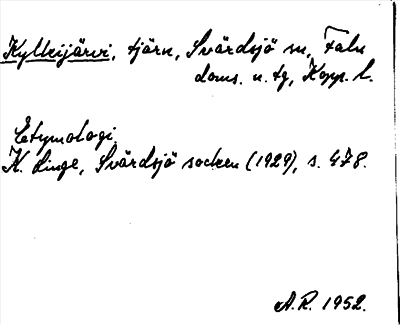 Kylkijärvi, tjärn, Svärdsjö sn, Falu
doms. n. tg, Kopp. l.
Etymologi
K. Linge, Svärdsjö socken (1929), s. 478.
A.R. 1952.